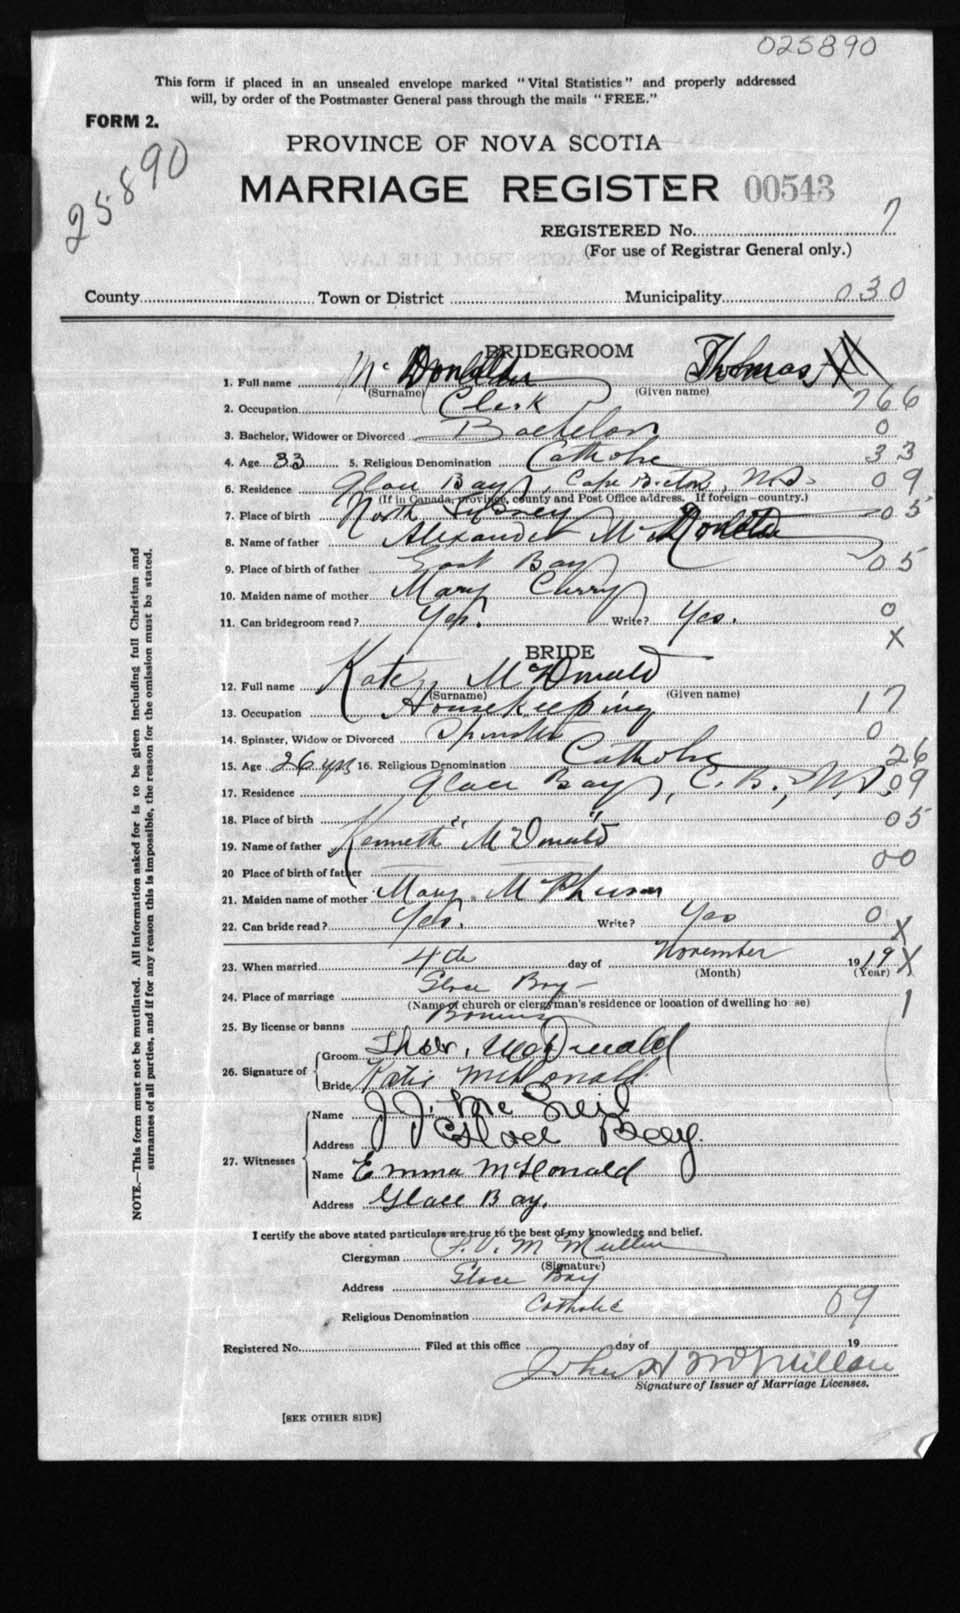 025890
This form if placed in an unsealed envelope marked "Vital Statistics" and properly addressed
will, by order of the Postmaster General pass through the mails "FREE."
FORM 2.
25890
PROVINCE OF NOVA SCOTIA
MARRIAGE REGISTER 00543
REGISTERED No. 7
(For use of Registrar General only.)
County Town or District Municipality 030
BRIDEGROOM
1. Full name Mc Thomas
(Surname) (Given name)
2. Occupation Clerk 766
3. Bachelor, Widower or Divorced Bachelor 0
4. Age 33 5. Religious Denomination Catholic 33
6. Residence Glace Bay, Cape Breton, N.S. 09
(If in Canada, province, county and Post Office address. If foreign—country.)
7. Place of birth North Sydney 05
8. Name of father Alexander Mc
9. Place of birth of father East Bay 05
10. Maiden name of mother Mary Curry
11. Can bridegroom read? Yes. Write? Yes. 0
X
BRIDE
12. Full name Kate McDonald
(Surname) (Given name)
13. Occupation Housekeeping 17
14. Spinster, Widow or Divorced Spinster 0
15. Age 26 yrs 16. Religious Denomination Catholic 26
17. Residence Glace Bay, C. B., N.S. 09
18. Place of birth " " 05
19. Name of father Kenneth McDonald
20 Place of birth of father 00
21. Maiden name of mother Mary McPherson
22. Can bride read? Yes. Write? Yes 0
X
23. When married 4th day of November 1919 X
(Month) (Year)
24. Place of marriage Glace Bay 1
(Name of church or clergyman's residence or location of dwelling house)
25. By license or banns Banns
26. Signature of Groom Thos. McDonald
Bride Katie McDonald
27. Witnesses Name J. J. McNeil
Address Glace Bay.
Name Emma McDonald
Address Glace Bay.
I certify the above stated particulars are true to the best of my knowledge and belief.
Clergyman McMullin
(Signature)
Address Glace Bay
Religious Denomination Catholic 09
Registered No. Filed at this office day of 19
John McMillan
Signature of Issuer of Marriage Licenses.
[SEE OTHER SIDE]
NOTE.—This form must not be mutilated. All information asked for is to be given including full Christian and
surnames of all parties, and if for any reason this is impossible, the reason for the omission must be stated.